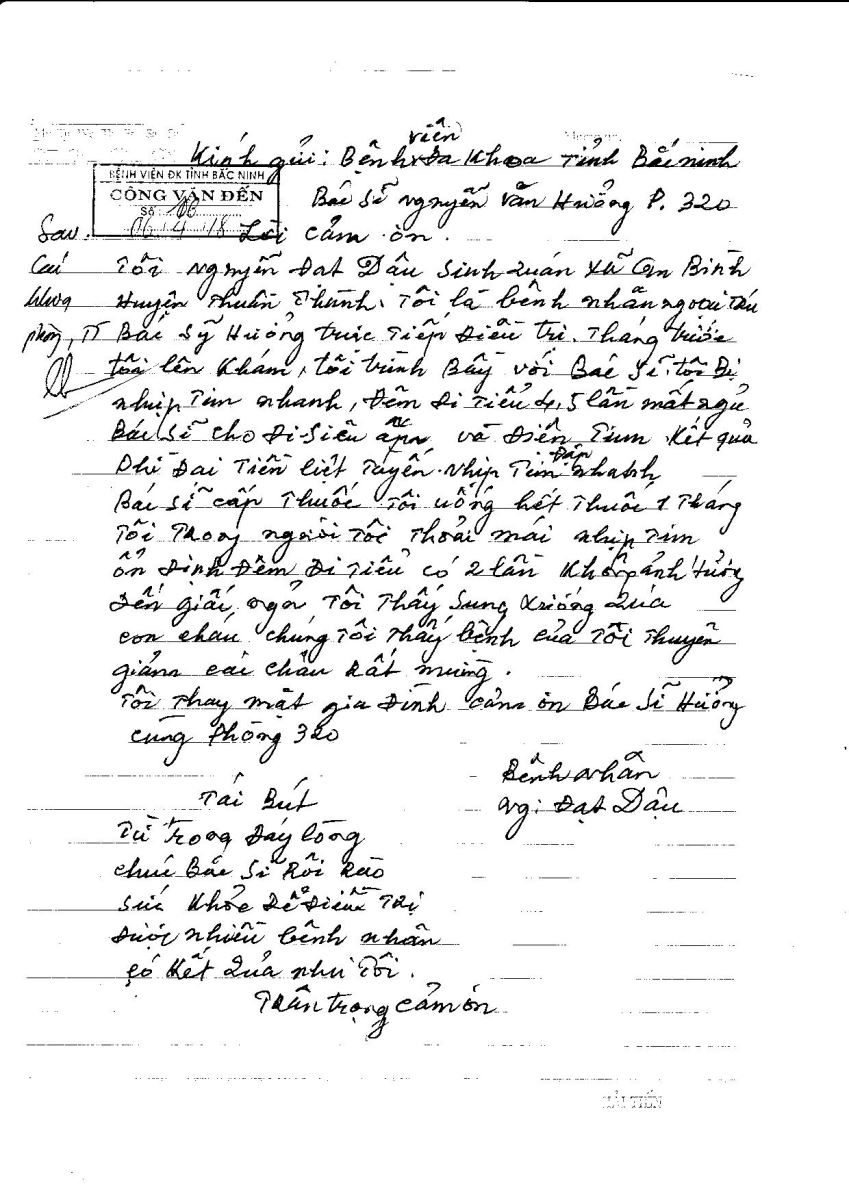 Kính gửi: Bệnh viện Đa Khoa Tỉnh Bắc ninh
BỆNH VIỆN ĐK TỈNH BẮC NINH
CÔNG VĂN ĐẾN
Số:
06/4/18
Bác Sĩ nguyễn Văn Hưởng P. 320
Lời cảm ơn.
Sao.
Tôi nguyễn Đạt Dậu Sinh quán xã An Bình
Huyện Thuận Thành. Tôi là bệnh nhân ngoại trú
phòng, Bác Sỹ Hưởng trực Tiếp Điều trị. Tháng trước
tôi lên khám, tôi trình Bầy với Bác Sĩ tôi Bị
nhịp Tim nhanh, Đêm Đi Tiểu 4, 5 lần mất ngủ
Bác Sĩ cho Đi Siêu âm và Điện Tim Kết quả
Phì Đại Tiền liệt Tuyến. Nhịp Tim Đập nhanh
Bác Sĩ cấp Thuốc Tôi uống hết Thuốc 1 Tháng
Tôi Trong người tôi Thoải mái nhịp Tim
ổn Định Đêm Đi Tiểu có 2 lần Không ảnh hưởng
Đến giấc ngủ Tôi Thấy Sung xướng quá
con cháu chúng Tôi Thấy bệnh của Tôi Thuyên
giảm các cháu Rất mừng.
Tôi Thay mặt gia Đình cảm ơn Bác Sĩ Hưởng
cùng Phòng 320
Bệnh nhân
Ng: Đạt Dậu
Tái Bút
Từ Trong Đáy lòng
chúc Bác Sĩ Rồi Rào
Sức Khỏe Để Điều Trị
Được nhiều bệnh nhân
có Kết quả như Tôi.
Trân trọng cảm ơn
HẢI TIẾN